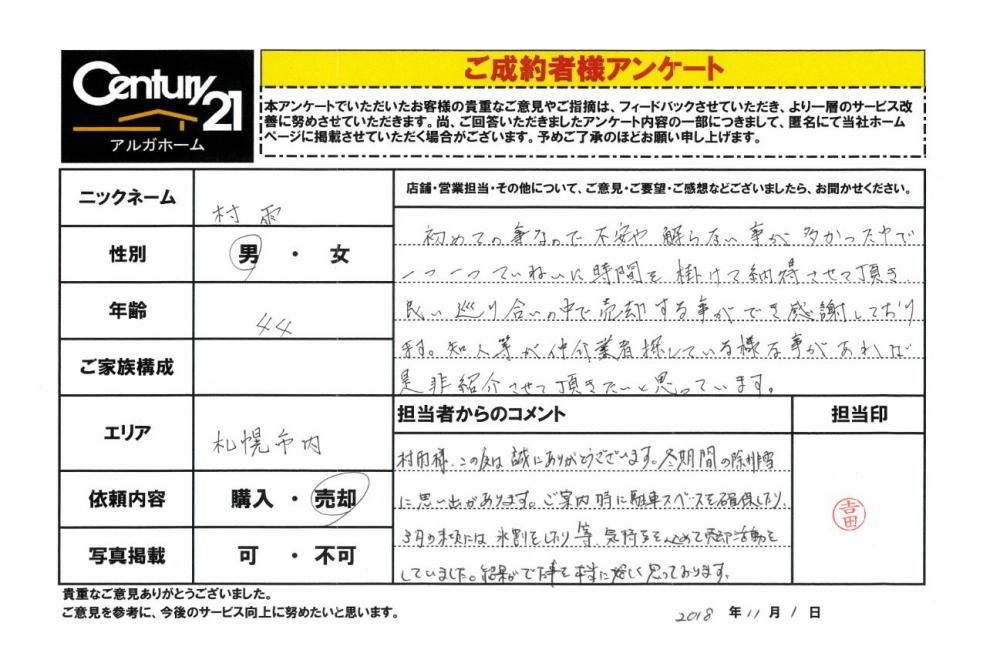 Century 21
アルガホーム
ご成約者様アンケート
本アンケートでいただいたお客様の貴重なご意見やご指摘は、フィードバックさせていただき、より一層のサービス改
善に努めさせていただきます。尚、ご回答いただきましたアンケート内容の一部につきまして、匿名にて当社ホーム
ページに掲載させていただく場合がございます。予めご了承のほどお願い申し上げます。
ニックネーム 村雨
性別 男 ・ 女
年齢 44
ご家族構成
エリア 札幌市内
依頼内容 購入 ・ 売却
写真掲載 可 ・ 不可
店舗・営業担当・その他について、ご意見・ご要望・ご感想などございましたら、お聞かせください。
初めての事なので不安や解らない事が多かった中で
一つ一つていねいに時間を掛けて納得させて頂き、
良い巡り合いの中で売却する事ができ感謝しており
ます。知人等が仲介業者探している様な事があれば
是非紹介させて頂きたいと思っています。
担当者からのコメント
担当印
村雨様、この度は誠にありがとうございます。冬期間の除排雪
に思い出があります。ご案内時に駐車スペースを確保したり、
3月の末頃には氷割をしたり等、気持をこめて売却活動を
していました。結果がでた事を本当に嬉しく思っております。
吉田
貴重なご意見ありがとうございました。
ご意見を参考に、今後のサービス向上に努めたいと思います。
2018 年 11 月 1 日